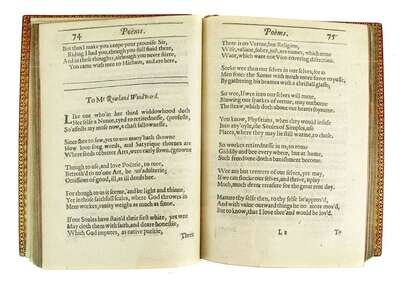 74 Poëms.
But thus I make you keepe your promise Sir,
Riding I had you, though you still staid there,
And in these thoughts, although you never stirre,
You came with mee to Micham, and are here.
To Mr Rowland Woodward.
LIke one who'in her third widdowhood doth
Her selfe a Nunne, tyed to retirednesse, (professe,
So'affects my muse now, a chast fallownesse.
Since shee to few, yet to too many'hath showne
How love-song weeds, and Satyrique thornes are
Where seeds of better Arts, were early sowne. (growne
Though to use, and love Poëtrie, to mee,
Betroth'd to no'one Art, be no'adulterie;
Omissions of good, ill, as ill deeds bee.
For though to us it seeme, and be light and thinne,
Yet in those faithfull scales, where God throwes in
Mens workes, vanity weighs as much as sinne.
If our Soules have stain'd their first white, yet wee
May cloth them with faith, and deare honestie,
Which God imputes, as native puritie,
There
Poëms. 75
There is no Vertue, but Religion,
Wise, valiant, sober, just, are names, which none
Want, which want not Vice-covering discretion.
Seeke wee then our selves in our selves; for as
Men force the Sunne with much more force to passe,
By gathering his beames with a christall glasse;
So wee, If wee into our selves will turne,
Blowing our sparkes of vertue, may outburne
The straw, which doth about our hearts sojourne.
You know, Physitians, when they would infuse
Into any'oyle, the Soules of Simples, use
Places, where they may lie still warme, to chuse.
So workes retirednesse in us; to rome
Giddily and bee every where, but at home,
Such freedome doth a banishment become.
Wee are but termers of our selves, yet may,
If we can stocke our selves, and thrive, uplay
Much, much deare treasure for the great rent day.
Manure thy selfe then, to thy selfe be'approv'd,
And with vaine outward things be no more mov'd,
But to know, that I love thee'and would be lov'd.
L 2 To